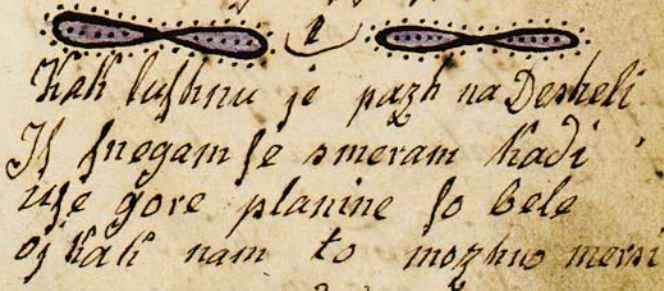 1
Kak luſhnu je pazh na Desheli
Iſ ſnegam ſe smeram kadi
uſe gore planine ſo bele
oj kak nam to mozhno mersi